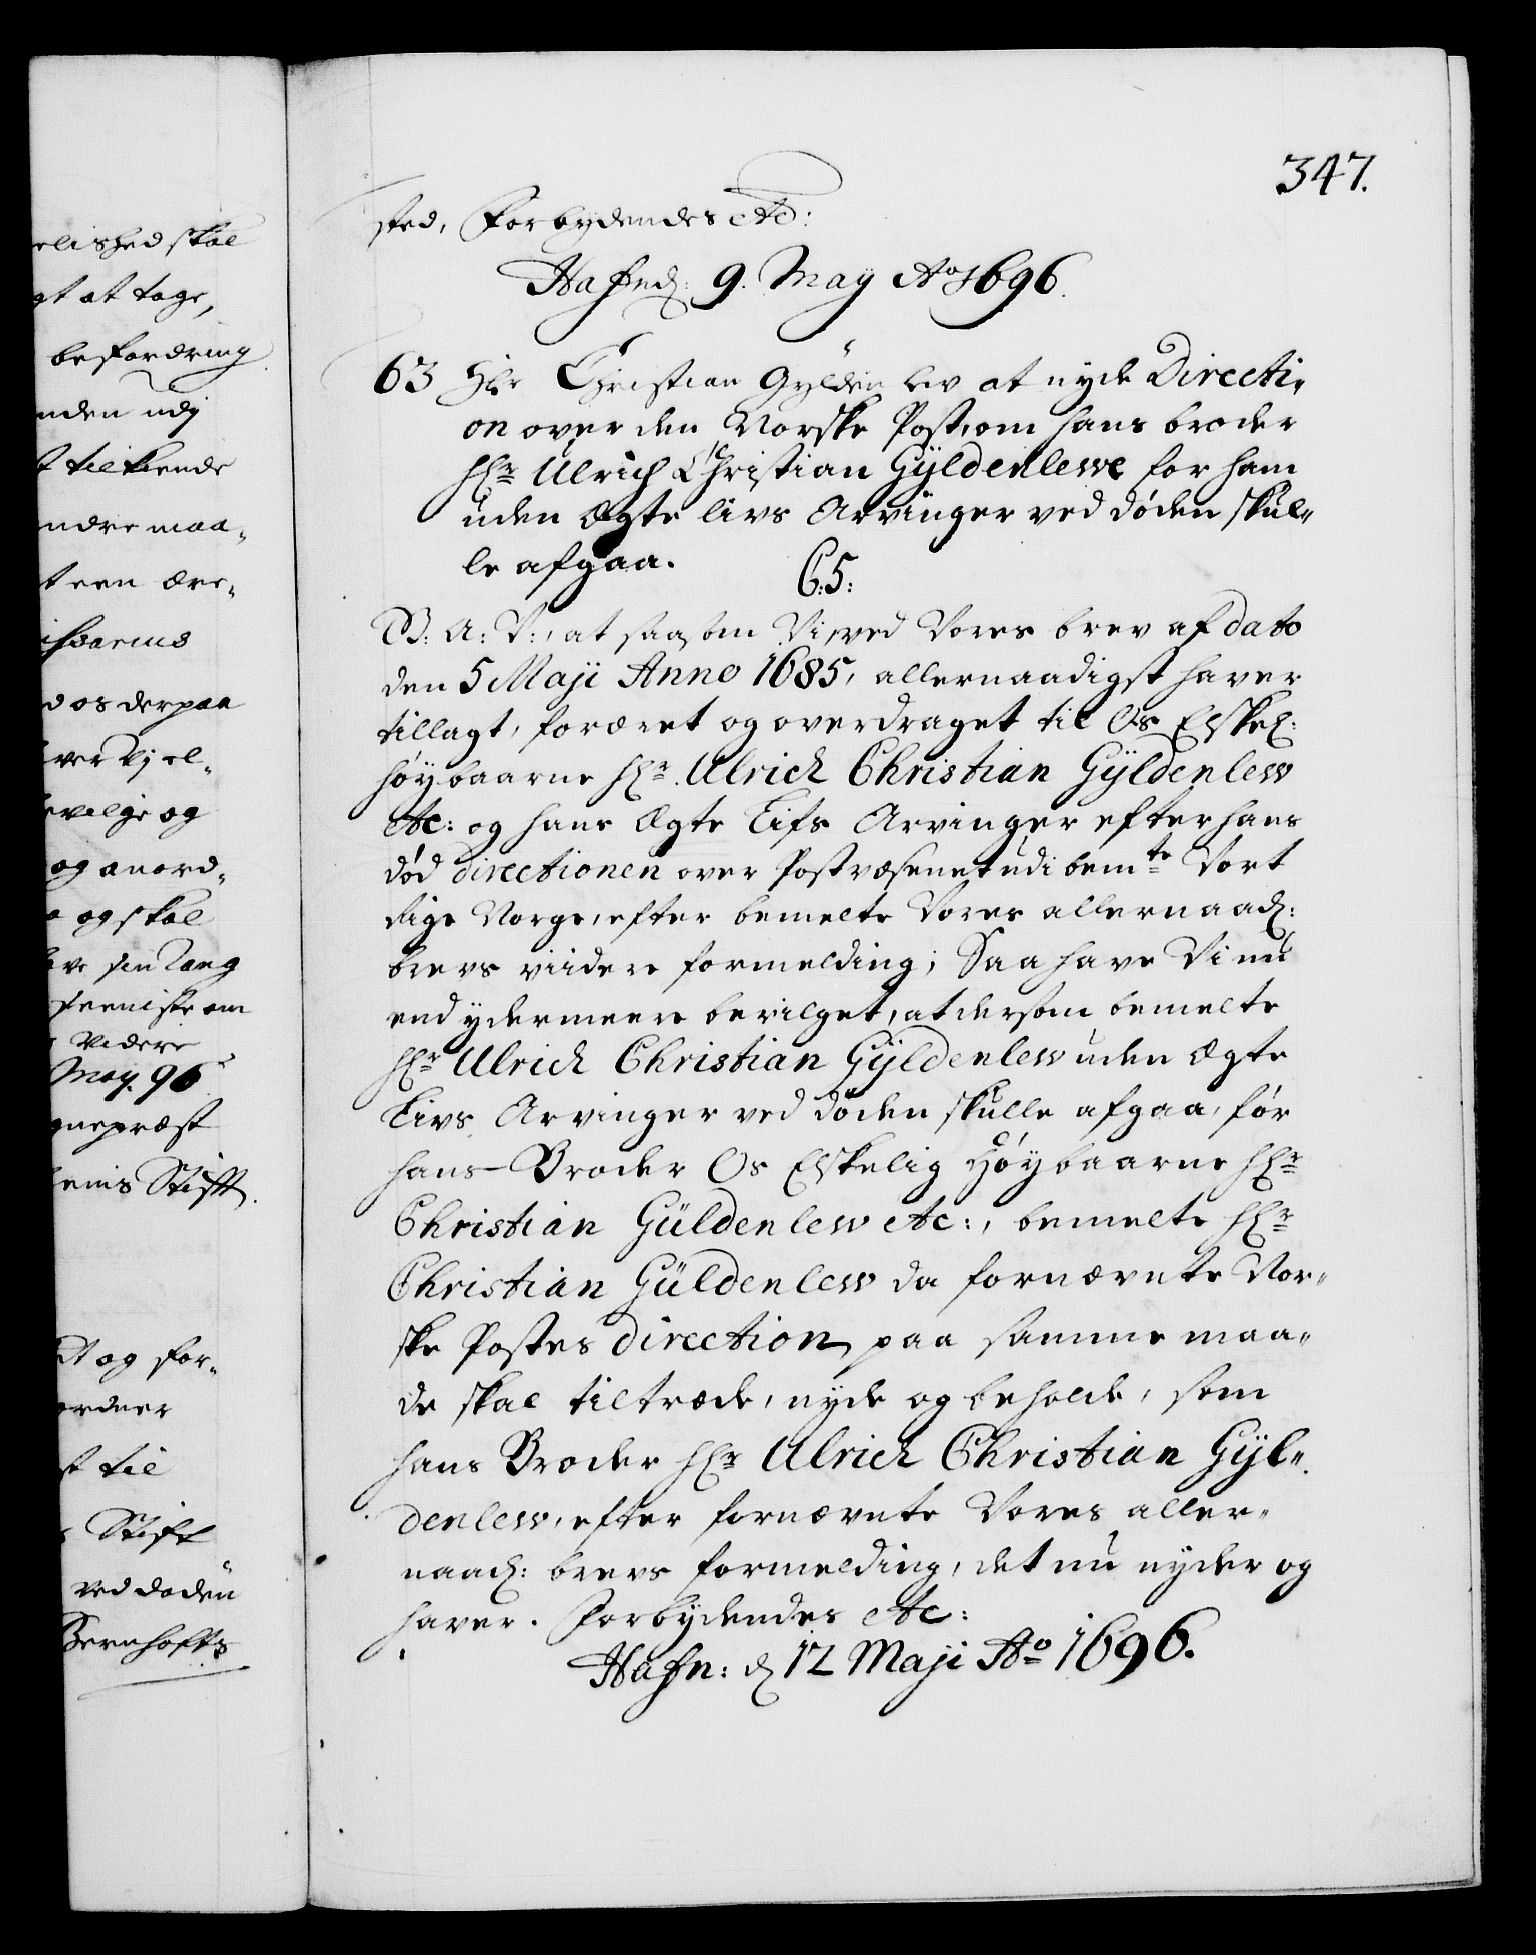 347.
sted, Forbydendes etc:
Hafn d: 9. May Ao 1696.
63 Hr Christian Gylden lew at nyde Directi„
on over den Norske Post, om hans broder
Hr Ulrich Christian Gyldenlewe for ham
uden Ægte livs Arvinger ved døden skul„
le afgaa.
C:5:
V: A: V:, at saasom Vi, ved Vores brev af dato
den 5 Maji Anno 1685, allernaadigst haver
tillagt, foræret og overdraget til Os Elskel:
høybaarne Hr. Ulrich Christian Gyldenlew
etc: og hans Ægte Lifs Arvinger efter hans
død directionen over Postvæsenet udi bemte Vort
Rige Norge, efter bemelte Vores allernaad:
brevs viidere formelding; Saa have Vi nu
end ydermeere bevilget, at dersom bemelte
Hr Ulrich Christian Gyldenlew uden Ægte
Livs Arvinger ved døden skulle afgaa, før
hans Broder Os Elskelig Høybaarne Hr
Christian Güldenlew etc:, bemelte Hr
Christian Güldenlew da fornævnte Nor„
ske Postes direction paa samme maa„
de skal tiltræde, nyde og beholde, som
hans Broder Hr Ulrich Christian Gyl„
denlew, efter fornævnte Vores aller„
naad: brevs formelding, det nu nyder og
haver. Forbydendes etc:
Hafn: d 12 Maji Ao 1696.